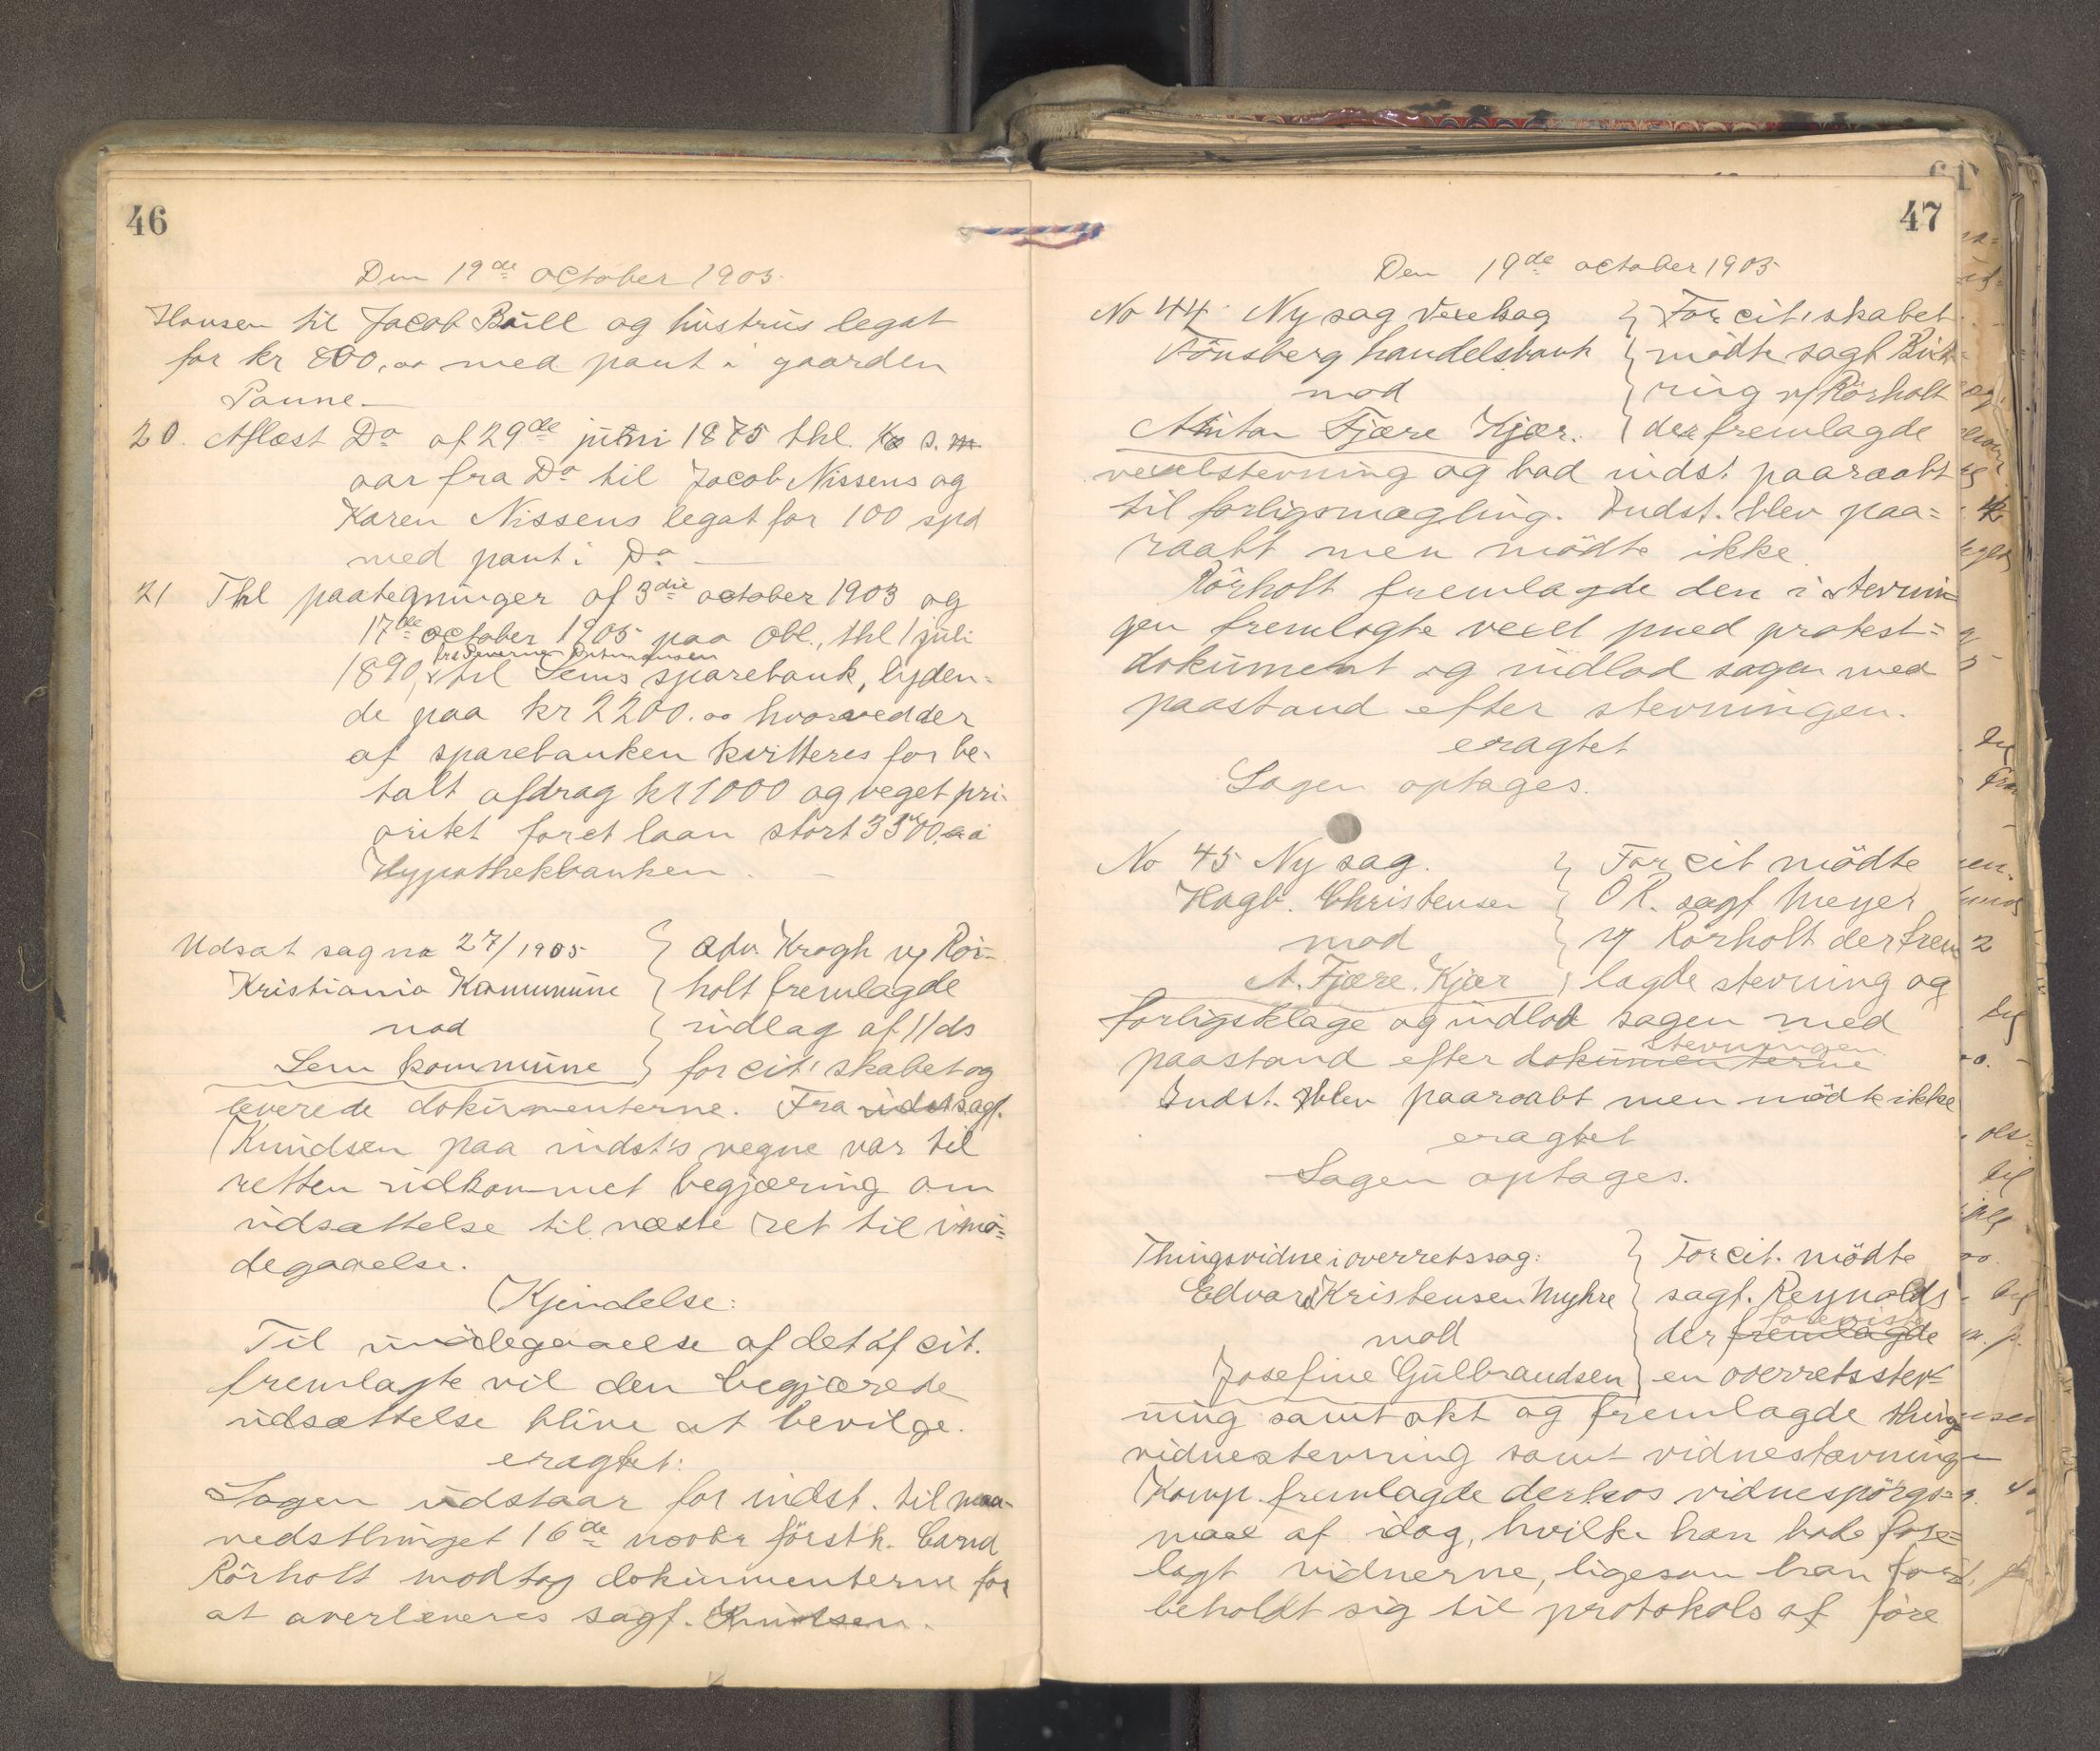 46
Den 19de october 1905.
Hansen til Jacob Bull og hustrus legat
for kr 800,00 med pant i gaarden
Panne.—
20. Aflæst Do af 29de juni 1875 thl. s.
aar fra Do til Jacob Nissens og
Karen Nissens legat for 100 spd
med pant i Do —
21 Thl paategninger af 3die october 1903 og
17de october 1905 paa Obl., thl 1 juli
1890, til Sems sparebank, lyden-
de paa kr 2200.00 hvorved der
af sparebanken kvitteres for be-
talt afdrag kr 1000 og veget pri-
oritet for et laan stort 3300,00 i
Hypothekbanken. —
Udsat sag no 27/1905 } Adv. Krogh v/ Rör-
Kristiania Kommune } holt fremlagde
mod } indlæg af 11/ds
Sem kommune } for cit'skabet og
leverede dokumenterne. Fra sagf.
Knudsen paa indst's vegne var til
retten indkommet begjæring om
udsættelse til næste ret til imö-
degaaelse.
Kjendelse:
Til imödegaaelse af det af cit.
fremlagte vil den begjærede
udsættelse blive at bevilge.
eragtet:
Sagen udstaar for indst. til maa-
nedsthinget 16de novbr förstk. Cand
Rörholt modtog dokumenterne for
at overleveres sagf. Knudsen.
47
Den 19de october 1905
No 44. Ny sag Vexelsag } For cit'skabet
Tönsberg handelsbank } mödte sagf. Birk-
mod } ring v/ Rörholt
Anton Fjære Kjær. } der fremlagde
vexelstevning og bad indst paaraabt
til forligsmægling. Indst. blev paa-
raabt men mödte ikke
Rörholt fremlagde den i stevnin-
gen fremlagte vexel med protest-
dokument og indlod sagen med
paastand efter stevningen.
eragtet
Sagen optages.
No 45 Ny sag. } For cit mödte
Hagb. Christensen } OR. sagf Meyer
mod } v/ Rörholt der frem
A. Fjære Kjær } lagde stevning og
forligsklage og indlod sagen med
paastand efter dokumenterne stevningen
Indst. blev paaraabt men mödte ikke
eragtet
Sagen optages.
Thingsvidne i overretssag: } For cit. mödte
Edvard Kristensen Myhre } sagf. Reynolds
mod } der fremlagde foreviste
Josefine Gulbrandsen } en overretsstev-
ning samt akt og fremlagde things
vidnestevning samt vidnestævning
Komp. fremlagde derhos vidnespörgs-
maal af idag, hvilke han bad fore-
lagt vidnerne, ligesom han for-
beholdt sig til protokols at före